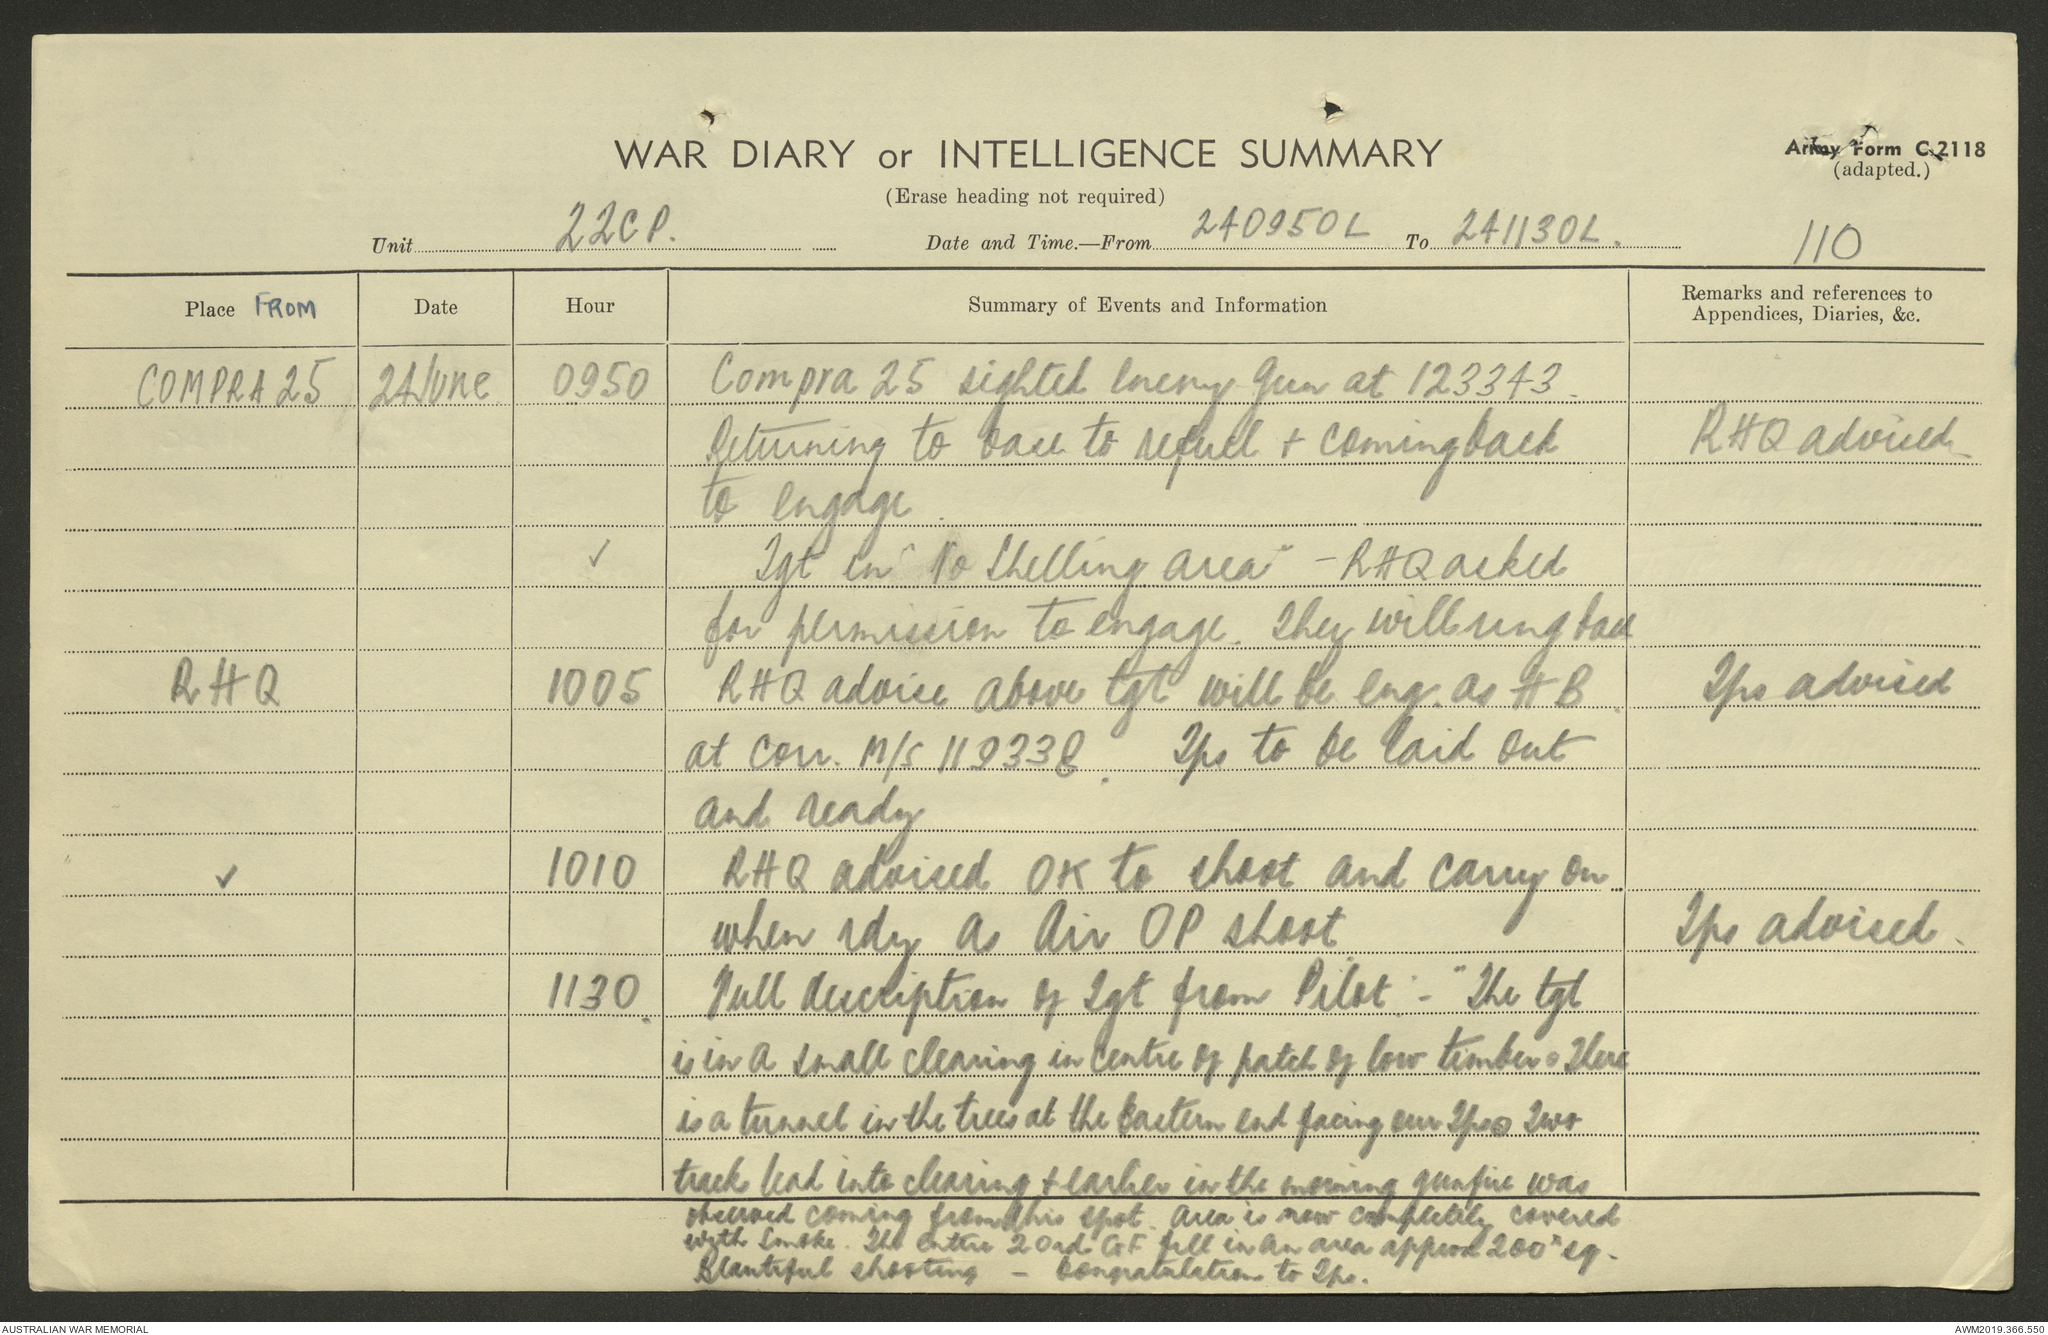 WAR DIARY or INTELLIGENCE SUMMARY
(Erase heading not required)
Army Form C.2118
(adapted.)
Unit 22CP.
Date and Time.—From 240950L To 241130L.
110
Place FROM
Date
Hour
Summary of Events and Information
Remarks and references to
Appendices, Diaries, &c.
COMPRA 25 24 June 0950 Compra 25 sighted enemy gun at 123343.
Returning to base to refuel + coming back RHQ advised
to engage.
✓ Tgt in "No Shelling area" - RHQ asked
for permission to engage. They will ring back
RHQ 1005 RHQ advise above tgt will be eng. as HB. Tps advised
at Corr. M/S 119338. Tps to be laid out
and ready
✓ 1010 RHQ advised OK to shoot and carry on
when rdy as Air OP shoot Tps advised.
1130. Full description of Tgt from Pilot :- "The tgt
is in a small clearing in centre of patch of low timber. There
is a tunnel in the trees at the Eastern end facing our Tps. Two
track lead into clearing + earlier in the morning gunfire was
observed coming from this spot. Area is now completely covered
with smoke. The entire 20 rds GF fell in an area approx 200x sq.
Beautiful shooting - Congratulations to Tps.
AUSTRALIAN WAR MEMORIAL
AWM2019.366.550